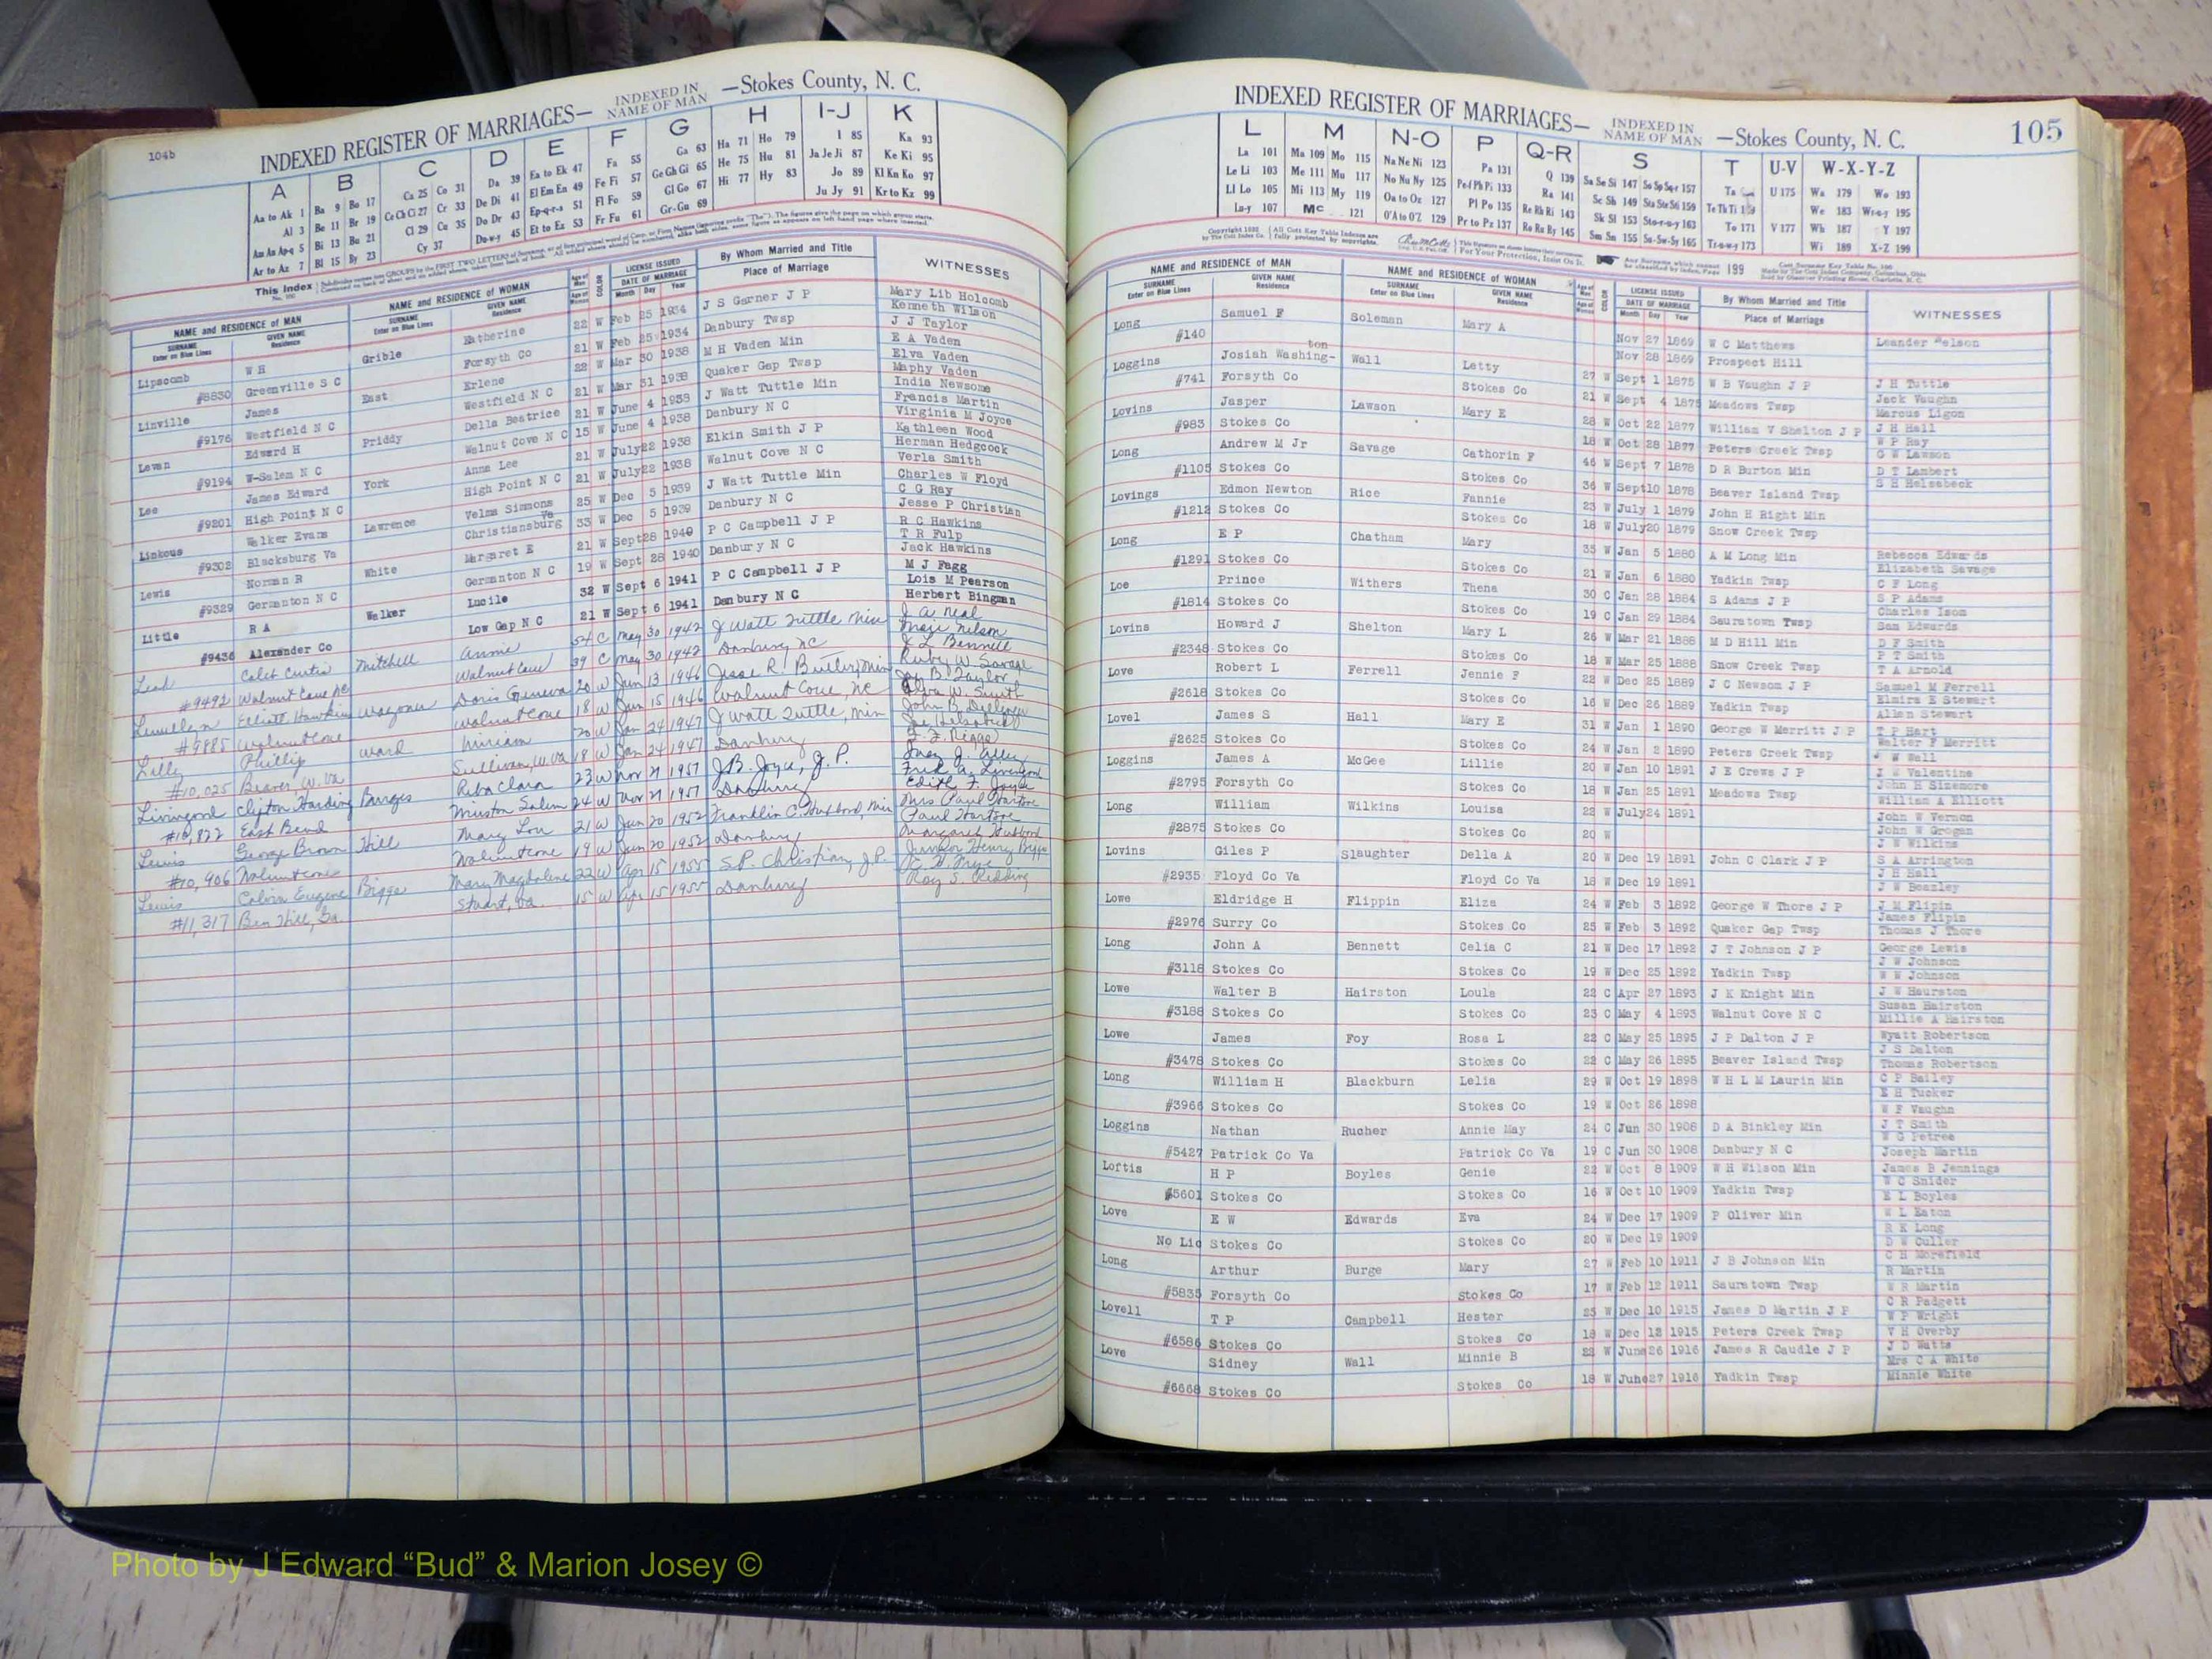 104b
INDEXED REGISTER OF MARRIAGES— INDEXED IN NAME OF MAN —Stokes County, N. C.
A B C D E F G H I-J K
Aa to Ak 1 Ba 9 Bo 17 Ca 25 Co 31 Da 39 Ea to Ek 47 Fa 55 Ga 63 Ha 71 Ho 79 I 85 Ka 93
Al 3 Be 11 Br 19 Ce Ch Ci 27 Cr 33 De Di 41 El Em En 49 Fe Fi 57 Ge Gh Gi 65 He 75 Hu 81 Ja Je Ji 87 Ke Ki 95
Am An Ap-q 5 Bi 13 Bu 21 Cl 29 Cu 35 Do Dr 43 Ep-q-r-s 51 Fl Fo 59 Gl Go 67 Hi 77 Hy 83 Jo 89 Kl Kn Ko 97
Ar to Az 7 Bl 15 By 23 Cy 37 Du-w-y 45 Et to Ez 53 Fr Fu 61 Gr-Gu 69 Ju Jy 91 Kr to Kz 99
NAME and RESIDENCE OF MAN NAME and RESIDENCE OF WOMAN COLOR LICENSE ISSUED By Whom Married and Title WITNESSES
SURNAME Enter on Blue Lines GIVEN NAME Residence SURNAME Enter on Blue Lines GIVEN NAME Residence DATE OF MARRIAGE Month Day Year Place of Marriage
Lipscomb W H Grible Katherine 22 W Feb 25 1934 J S Garner J P Mary Lib Holcomb
Kenneth Wilson
#8830 Greenville S C Forsyth Co 21 W Feb 25 1934 Danbury Twsp J J Taylor
Linville James East Erlene 22 W Mar 30 1938 M H Vaden Min E A Vaden
Elva Vaden
#9176 Westfield N C Westfield N C 21 W Mar 31 1938 Quaker Gap Twsp Maphy Vaden
Levan Edward H Priddy Della Beatrice 21 W June 4 1938 J Watt Tuttle Min India Newsome
Francis Martin
#9194 W-Salem N C Walnut Cove N C 15 W June 4 1938 Danbury N C Virginia M Joyce
Lee James Edward York Anna Lee 21 W July 22 1938 Elkin Smith J P Kathleen Wood
Herman Hedgcock
#9201 High Point N C High Point N C 21 W July 22 1938 Walnut Cove N C Verla Smith
Linkous Walker Evans Lawrence Velma Simmons 25 W Dec 5 1939 J Watt Tuttle Min Charles W Floyd
C G Ray
#9302 Blacksburg Va Christiansburg Va 33 W Dec 5 1939 Danbury N C Jesse P Christian
Lewis Norman R White Margaret E 21 W Sept 28 1940 P C Campbell J P R C Hawkins
T R Fulp
#9329 Germanton N C Germanton N C 19 W Sept 28 1940 Danbury N C Jack Hawkins
Little R A Walker Lucile 32 W Sept 6 1941 P C Campbell J P M J Fagg
Lois M Pearson
#9436 Alexander Co Low Gap N C 21 W Sept 6 1941 Danbury N C Herbert Bingman
Caleb Curtis Mitchell Annie 54 C May 30 1942 J Watt Tuttle Min J A Neal
#9492 Walnut Cove NC Walnut Cove 39 C May 30 1942 Danbury NC J L Bennell
Elliott Hawkins Wagoner Doris Geneva 20 W Jun 13 1946 Jesse R. Butler, Min Ruby W. Savage
#9885 Walnut Cove Walnut Cove 18 W Jun 15 1946 Walnut Cove, NC
Lilly Phillip Ward Miriam 20 W Jan 24 1947 J Watt Tuttle, Min
#10,025 Beaver, W. Va Sullivan, W. Va 18 W Jan 24 1947 Danbury
Livengood Clifton Harding Burges Reba Clara 23 W Nov 21 1951 J.B. Joyce, J.P.
#10,822 East Bend Winston Salem 24 W Nov 21 1951 Danbury Edith F. Joyce
Lewis George Brown Hill Mary Lou 21 W Jun 20 1952 Franklin C. Hubbard, Min Mrs Paul Hartsoe
Paul Hartsoe
#10,906 Walnut Cove Walnut Cove 19 W Jun 20 1952 Danbury Margaret Hubbard
Lewis Calvin Eugene Biggs Mary Magdalene 22 W Apr 15 1955 S.P. Christian, J.P. Junior Henry Biggs
#11,317 Ben Hill, Ga. Stuart, Va 15 W Apr 15 1955 Danbury Roy S. Redding
INDEXED REGISTER OF MARRIAGES— INDEXED IN NAME OF MAN —Stokes County, N. C. 105
L M N-O P Q-R S T U-V W-X-Y-Z
La 101 Ma 109 Mo 115 Na Ne Ni 123 Pa 131 Q 139 Sa Se Si 147 So Sp Sq-r 157 Ta U 175 Wa 179 Wo 193
Le Li 103 Me 111 Mu 117 No Nu Ny 125 Pe-f Ph Pi 133 Ra 141 Sc Sh 149 Sta Ste Sti 159 Te Th Ti We 183 Wr-u-y 195
Ll Lo 105 Mi 113 My 119 Oa to Oz 127 Pl Po 135 Re Rh Ri 143 Sk Sl 153 Sto-r-u-y 163 To 171 V 177 Wh 187 Y 197
Lu-y 107 Mc 121 O'A to O'Z 129 Pr to Pz 137 Ro Ru Ry 145 Sm Sn 155 Su-Sw-Sy 165 Tr-u-w-y 173 Wi 189 X-Z 199
NAME and RESIDENCE OF MAN NAME and RESIDENCE OF WOMAN COLOR LICENSE ISSUED By Whom Married and Title WITNESSES
SURNAME Enter on Blue Lines GIVEN NAME Residence SURNAME Enter on Blue Lines GIVEN NAME Residence DATE OF MARRIAGE Month Day Year Place of Marriage
Long Samuel F Soleman Mary A Nov 27 1869 W C Matthews Leander Nelson
#140 Nov 28 1869 Prospect Hill
Loggins Josiah Washington Wall Letty 27 W Sept 1 1875 W B Vaughn J P J H Tuttle
Jack Vaughn
#741 Forsyth Co Stokes Co 21 W Sept 4 1875 Meadows Twsp Marcus Ligon
Lovins Jasper Lawson Mary E 28 W Oct 22 1877 William V Shelton J P J H Hall
W P Ray
#983 Stokes Co 18 W Oct 28 1877 Peters Creek Twsp G W Lawson
Long Andrew M Jr Savage Cathorin F 46 W Sept 7 1878 D R Burton Min D T Lambert
S H Helsabeck
#1105 Stokes Co Stokes Co 36 W Sept 10 1878 Beaver Island Twsp
Lovings Edmon Newton Rice Fannie 23 W July 1 1879 John H Right Min
#1212 Stokes Co Stokes Co 18 W July 20 1879 Snow Creek Twsp
Long E P Chatham Mary 35 W Jan 5 1880 A M Long Min Rebecca Edwards
Elizabeth Savage
#1291 Stokes Co Stokes Co 21 W Jan 6 1880 Yadkin Twsp C F Long
Loe Prince Withers Thena 30 C Jan 28 1884 S Adams J P S P Adams
Charles Isom
#1814 Stokes Co Stokes Co 19 C Jan 29 1884 Sauratown Twsp Sam Edwards
Lovins Howard J Shelton Mary L 26 W Mar 21 1888 M D Hill Min D F Smith
P T Smith
#2348 Stokes Co Stokes Co 18 W Mar 25 1888 Snow Creek Twsp T A Arnold
Love Robert L Ferrell Jennie F 22 W Dec 25 1889 J C Newsom J P Samuel M Ferrell
Elmira E Stewart
#2618 Stokes Co Stokes Co 16 W Dec 26 1889 Yadkin Twsp Allen Stewart
Lovel James S Hall Mary E 31 W Jan 1 1890 George W Merritt J P T P Hart
Walter F Merritt
#2625 Stokes Co Stokes Co 24 W Jan 2 1890 Peters Creek Twsp W Wall
Loggins James A McGee Lillie 20 W Jan 10 1891 J E Crews J P J W Valentine
John H Sizemore
#2795 Forsyth Co Stokes Co 18 W Jan 25 1891 Meadows Twsp William A Elliott
Long William Wilkins Louisa 22 W July 24 1891 John W Vernon
John W Grogan
#2875 Stokes Co Stokes Co 20 W J W Wilkins
Lovins Giles P Slaughter Della A 20 W Dec 19 1891 John C Clark J P S A Arrington
J H Hall
#2935 Floyd Co Va Floyd Co Va 18 W Dec 19 1891 J W Beazley
Lowe Eldridge H Flippin Eliza 24 W Feb 3 1892 George W Thore J P J M Flipin
James Flipin
#2976 Surry Co Stokes Co 25 W Feb 3 1892 Quaker Gap Twsp Thomas J Thore
Long John A Bennett Celia C 21 W Dec 17 1892 J T Johnson J P George Lewis
J W Johnson
#3118 Stokes Co Stokes Co 19 W Dec 25 1892 Yadkin Twsp W W Johnson
Lowe Walter B Hairston Loula 22 C Apr 27 1893 J K Knight Min J W Haurston
Susan Hairston
#3188 Stokes Co Stokes Co 23 C May 4 1893 Walnut Cove N C Millie A Hairston
Lowe James Foy Rosa L 22 C May 25 1895 J P Dalton J P Wyatt Robertson
J S Dalton
#3478 Stokes Co Stokes Co 22 C May 26 1895 Beaver Island Twsp Thomas Robertson
Long William H Blackburn Lelia 29 W Oct 19 1898 W H L M Laurin Min C P Bailey
E H Tucker
#3966 Stokes Co Stokes Co 19 W Oct 26 1898 W F Vaughn
Loggins Nathan Rucher Annie May 24 C Jun 30 1908 D A Binkley Min J T Smith
W G Petree
#5427 Patrick Co Va Patrick Co Va 19 C Jun 30 1908 Danbury N C Joseph Martin
Loftis H P Boyles Genie 22 W Oct 8 1909 W H Wilson Min James B Jennings
W C Snider
#5601 Stokes Co Stokes Co 16 W Oct 10 1909 Yadkin Twsp E L Boyles
Love E W Edwards Eva 24 W Dec 17 1909 P Oliver Min W L Eaton
R K Long
No Lic Stokes Co Stokes Co 20 W Dec 19 1909 D W Culler
Long Arthur Burge Mary 27 W Feb 10 1911 J B Johnson Min C H Morefield
R Martin
#5835 Forsyth Co Stokes Co 17 W Feb 12 1911 Sauratown Twsp W R Martin
Lovell T P Campbell Hester 25 W Dec 10 1915 James D Martin J P C R Padgett
W P Wright
#6586 Stokes Co Stokes Co 18 W Dec 12 1915 Peters Creek Twsp V H Overby
Love Sidney Wall Minnie B 22 W June 26 1916 James R Caudle J P J D Watts
Mrs C A White
#6668 Stokes Co Stokes Co 18 W June 27 1916 Yadkin Twsp Minnie White
Photo by J Edward “Bud” & Marion Josey ©